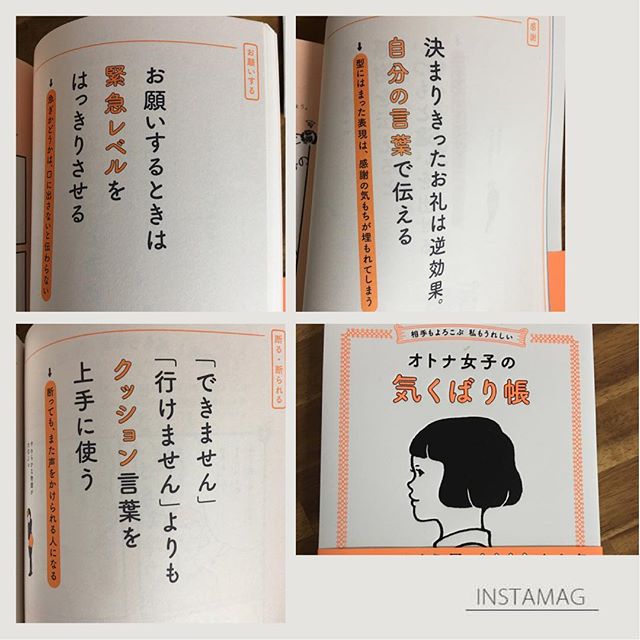 お願いする
お願いするときは
緊急レベルを
はっきりさせる
↓急ぎかどうかは、口に出さないと伝わらない
感謝
決まりきったお礼は逆効果。
自分の言葉で伝える
↓型にはまった表現は、感謝の気もちが埋もれてしまう
断る・断られる
「できません」
「行けません」よりも
クッション言葉を
上手に使う
↓断っても、また声をかけられる人になる
相手もよろこぶ 私もうれしい
オトナ女子の
気くばり帳
INSTAMAG